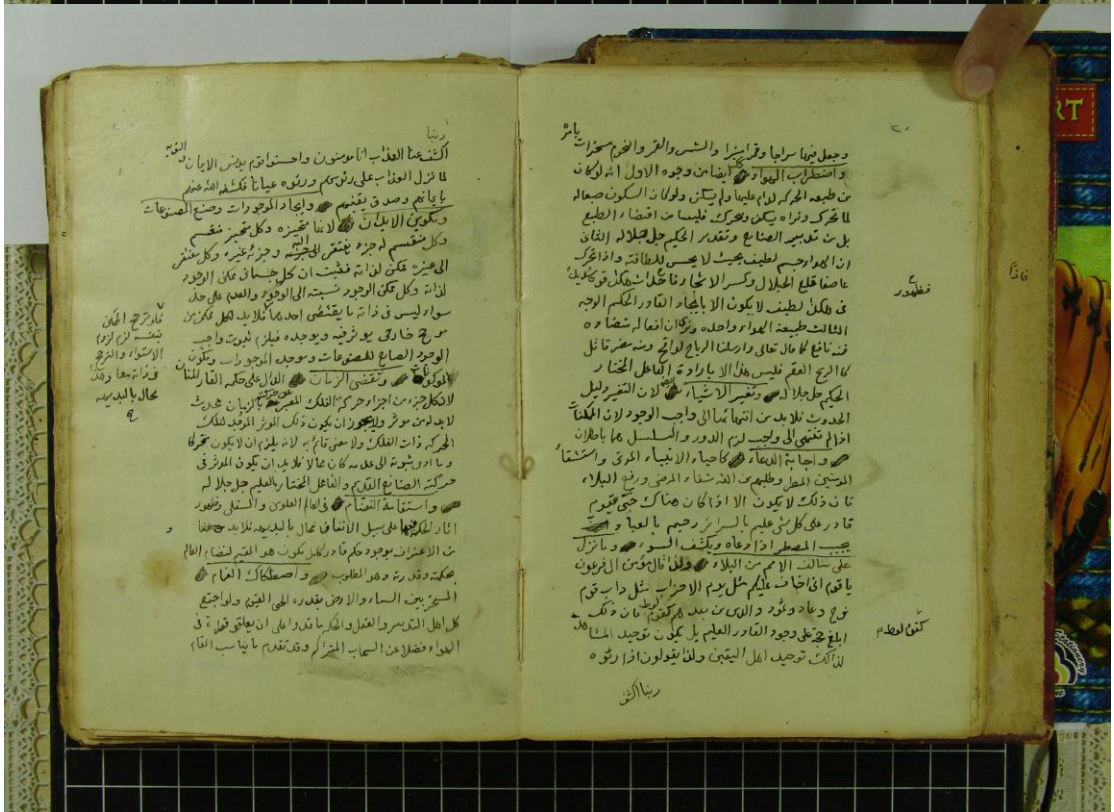 ٢٠
وجعل فيها سراجا وقمرا منيرا والشمس والقمر والنجوم مسخرات بامره
واضطراب الهواء ايضا من وجوه الاول انه لو كان
من طبعه الحركه لدام عليها ولم يسكن ولو كان السكون طبعا له
لما تحرك ونراه يسكن ويتحرك فليسا من اقتضاء الطبع
بل من تدبير الصانع وتقدير الحكيم جل جلاله الثانى
ان الهواء جسم لطيف بحيث لا يحس للطافته واذا تحرك
عاصفا قلع الجبال وكسر الاشجار
فظهور
فى لطيف لا يكون الا بايجاد القادر الحكيم الوجه
الثالث طبيعة الهواء واحده ونرى ان افعاله متضاده
فمنه نافع كما قال تعالى وارسلنا الرياح لواقح ومنه مضر قاتل
كالريح العقم فليس هذا الا بارادة الفاعل المختار
الحكيم جل جلاله وتغير الاشياء لان التغير دليل
الحدوث فلابد من انتهائها الى واجب الوجود لان الممكنات
اذا لم تنتهى الى واجب لزم الدور والتسلسل هما باطلان
واجابة الدعاء كاحياء الانبياء الموتى واستسقاء
المومنين المطر وطلبهم من الله شفاء المرضى ورفع البلاء
فان ذلك لا يكون الا اذا كان هناك حى قيوم
قادر على كل شئ عليم بالسرائر رحيم بالعباد
يجيب المضطر اذا دعاه ويكشف السوء وما نزل
على سالف الامم من البلاء ولذا قال مومن ال فرعون
يا قوم انى اخاف عليكم مثل يوم الاحزاب مثل داب قوم
نوح وعاد وثمود والذين من بعدهم كقوم لوط فان ذلك
ابلغ حجة على وجود القادر العليم بل يكون توحيد المشاهد
لذلك توحيد اهل اليقين ولذا يقولون اذا رئوه
ربنا اكشف
ربنا
اكشف عنا العذاب انا مومنون واحسنوا قوم يونس الايمان والتوبه
لما نزل العذاب على رئوسهم ورئوه عيانا فكشف الله عنهم
بايمانهم وصدق يقينهم وايجاد الموجودات وصنع المصنوعات
وتكوين الابدان لانها متحيزه وكل متحيز منقسم
وكل منقسم له جزء يفتقر الى جزئه وجزئه غيره وكل مفتقر
الى غيره ممكن لذاته فثبت ان كل جسمانى ممكن الوجود
لذاته وكل ممكن الوجود نسبته الى الوجود والعدم على حد
سواء ليس فى ذاته ما يقتضى احدهما فلابد لكل ممكن من
مرجح خارجى يوثر فيه ويوجده فيلزم ثبوت واجب
الوجود الصانع للمصنوعات وموجد الموجودات ومكون
المكونات وتقضى الزمان الدال على حكمة القادر المنان
لان كل جزء من اجزاء حركة الفلك المعبر عن حركته بالزمان محدث
لابد له من موثر ولا يجوز ان يكون ذلك الموثر الموجد لتلك
الحركه ذات الفلك ولا معنى قائم به لانه يلزم ان لا يكون متحركا
وما ادى ثبوته الى عدمه كان محالا فلابد ان يكون الموثر فى
حركته الصانع القديم والفاعل المختار العليم جل جلاله
واستقامة النظام فى العالم العلوى والسفلى وظهور
اثار الحكمة فيها على سبيل الاتفاق محال بالبديهه فلابد
من الاعتراف بوجود حكم قادر كامل يكون هو المقيم لنظام العالم
بحكمته وقدرته وهو المطلوب واصطكاك الغمام
المسخر بين السماء والارض بقدرة الحى القيوم ولو اجتمع
كل اهل التدبير والعقل والحكمة ما قدروا على ان يعلقوا قطرة فى
الهواء فضلا عن السحاب المتراكم وقد تقدم ما يناسب المقام
فلو ترجح الممكن
بنفسه لزم لزوم
الاستواء والترجح
فى ذاته معا وهذا
محال بالبديهه